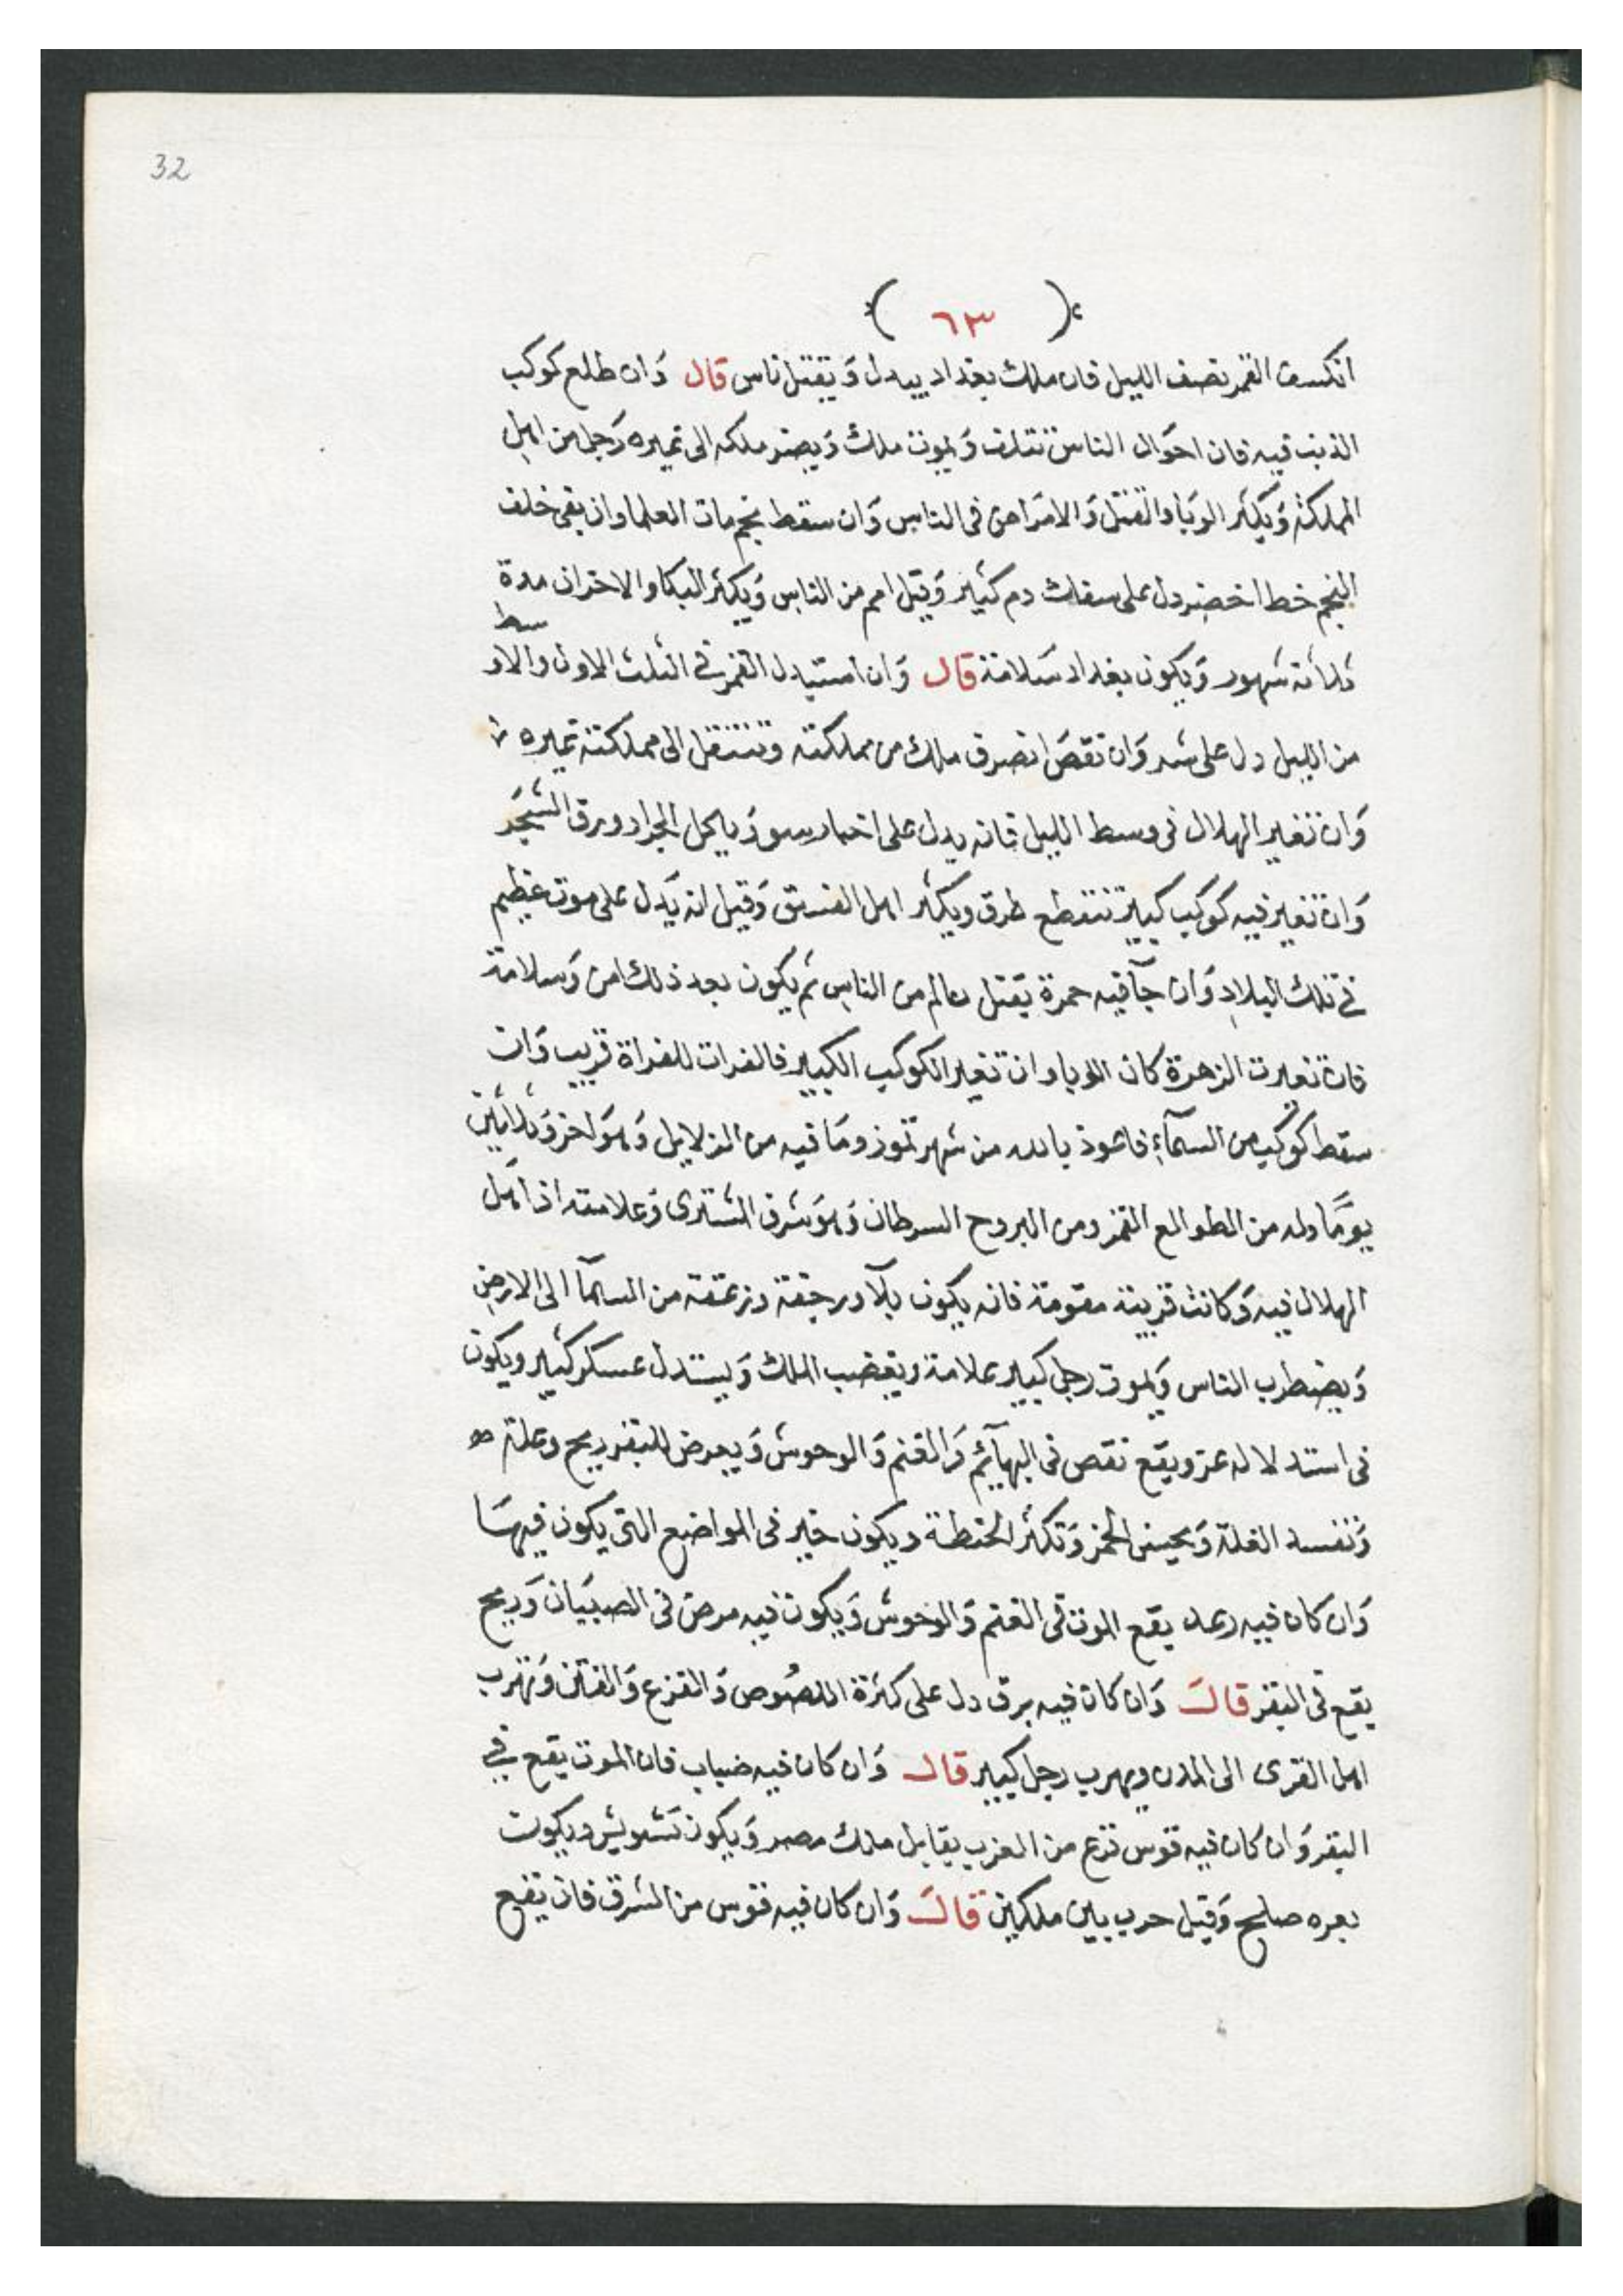 32
( ٦٣ )
انكسف القمر نصف الليل فان ملك بغداد يبدل وَيقتل ناس قال وَان طلع كوكب
الذنب فيه فان احوَال الناس تتلف وَيموت ملك وَيصير ملكه الى غيره رَجل من اهل
المملكة وَيكثر الوَبا والقتل وَالامرَاض فى الناس وَان سقط نجم مات العلما وان بقى خلف
النجم خط اخضر دل على سفك دم كثير وَقتل امم من الناس وَيكثر البكا والاحزان مدة
ثلاثة شهور وَيكون بغداد سَلامة قال وَان استبدل القمر في الثلث الاول والاوسط
من الليل دل على شر وَان نقصَ انصرف ملك من مملكته وتنتقل الى مملكة غيره
وَان تغير الهلال فى وسط الليل فانه يدل على اخبار سو وَياكل الجراد ورق الشجَر
وَان تغير فيه كوكب كبير تنقطع طرق ويكثر اهل الفسق وَقيل انه يَدل على موت عظيم
في تلك البلاد وَان جآ فيه حمرة يقتل عالم من الناس ثم يكون بعد ذلك امن وَسلامة
فان تغيرت الزهرة كان الوبا وان تغير الكوكب الكبير فالفرات للفراة قريب وَان
سقط كوكب من السمآء فاعوذ بالله من شهر تموز ومَا فيه من الدلايل وَهوَ احد وَثلاثين
يومًا وله من الطوالع القمر ومن البروج السرطان وَهوَ شرف المشترى وَعلامته اذا اهل
الهلال فيه وَكانت قرينة مقومة فانه يكون بلآ ورجفة وزعقة من السمآ الى الارض
وَيضطرب الناس وَيموت رجل كبير علامة ويغضب الملك وَيستدل عسكر كثير ويكون
فى استدلاله عز ويقع نقص فى البهآئم وَالغنم وَالوحوش وَيعرض للبقر ريح وعلة
وَتفسد الغلة وَيحسن الخمر وَتكثر الحنطة ويكون خير فى المواضع التى يكون فيهَا
وَان كان فيه رعد يقع الموت فى الغنم وَالوحوش وَيكون فيه مرض فى الصبيَان وَريح
يقع فى البقر قالَ وَان كان فيه برق دل على كثرة اللصُوص وَالفزع وَالفتن وَتهرب
اهل القرى الى المدن ويهرب رجل كبير قال وَان كان فيه ضباب فان الموت يقع في
البقر وَان كان فيه قوس قزع من الغرب يقابل ملك مصر وَيكون تَشويش ويكون
بعره صلح وَقيل حرب بين ملكين قالَ وَان كان فيه قوس من الشرق فان يقع